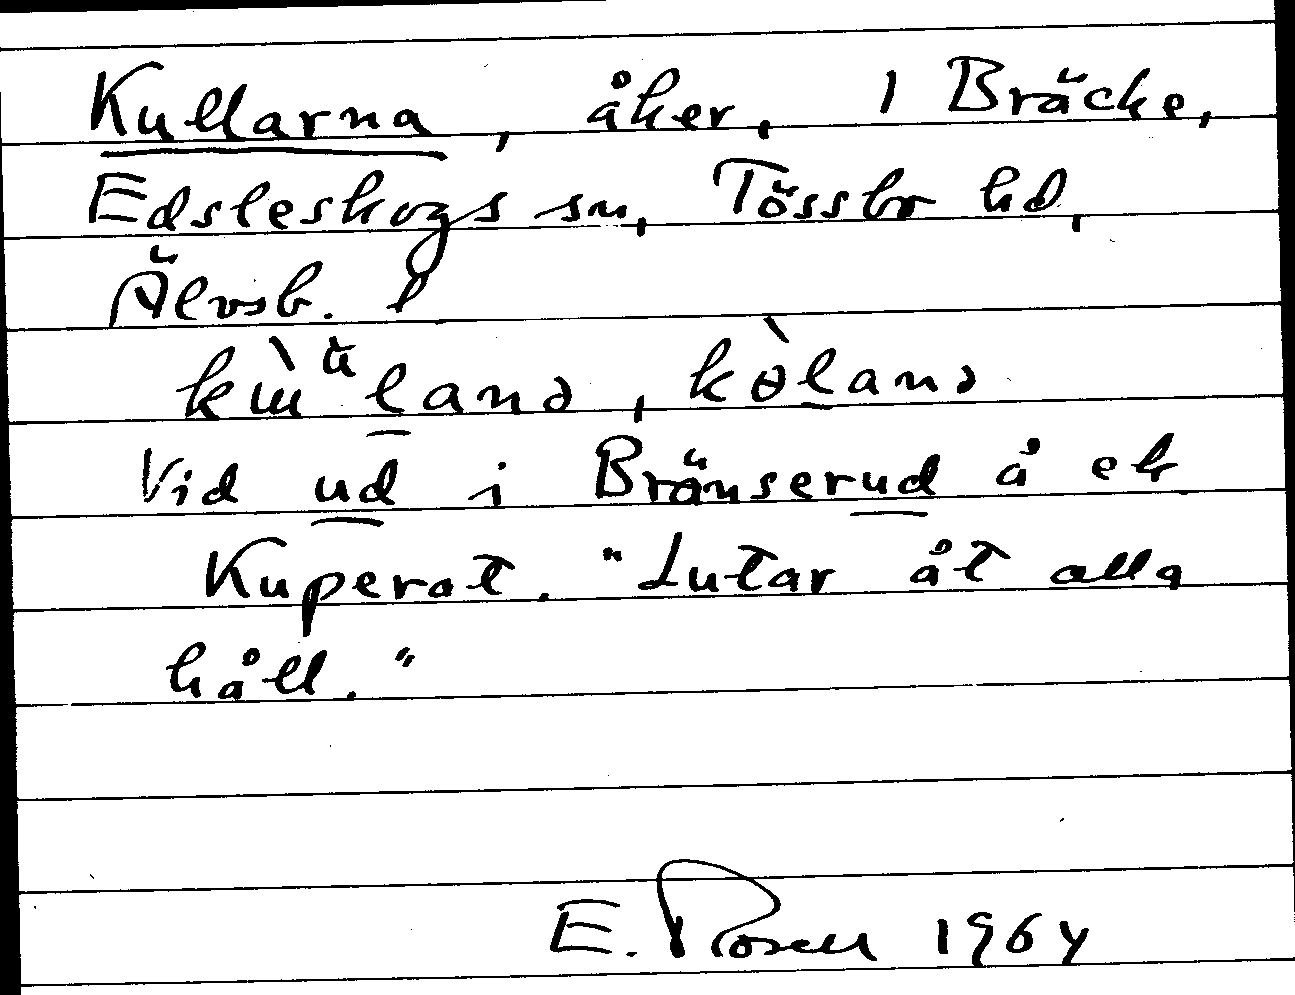 Kullarna, åker, 1 Bräcke,
Edsleskogs sn, Tössbo hd,
Älvsb. l
kɯ̀ʉ̈land, kɵ̀land
Vid ud i Bränserud å ek
Kuperat. "Lutar åt alla
håll."
E. Rosell 1964